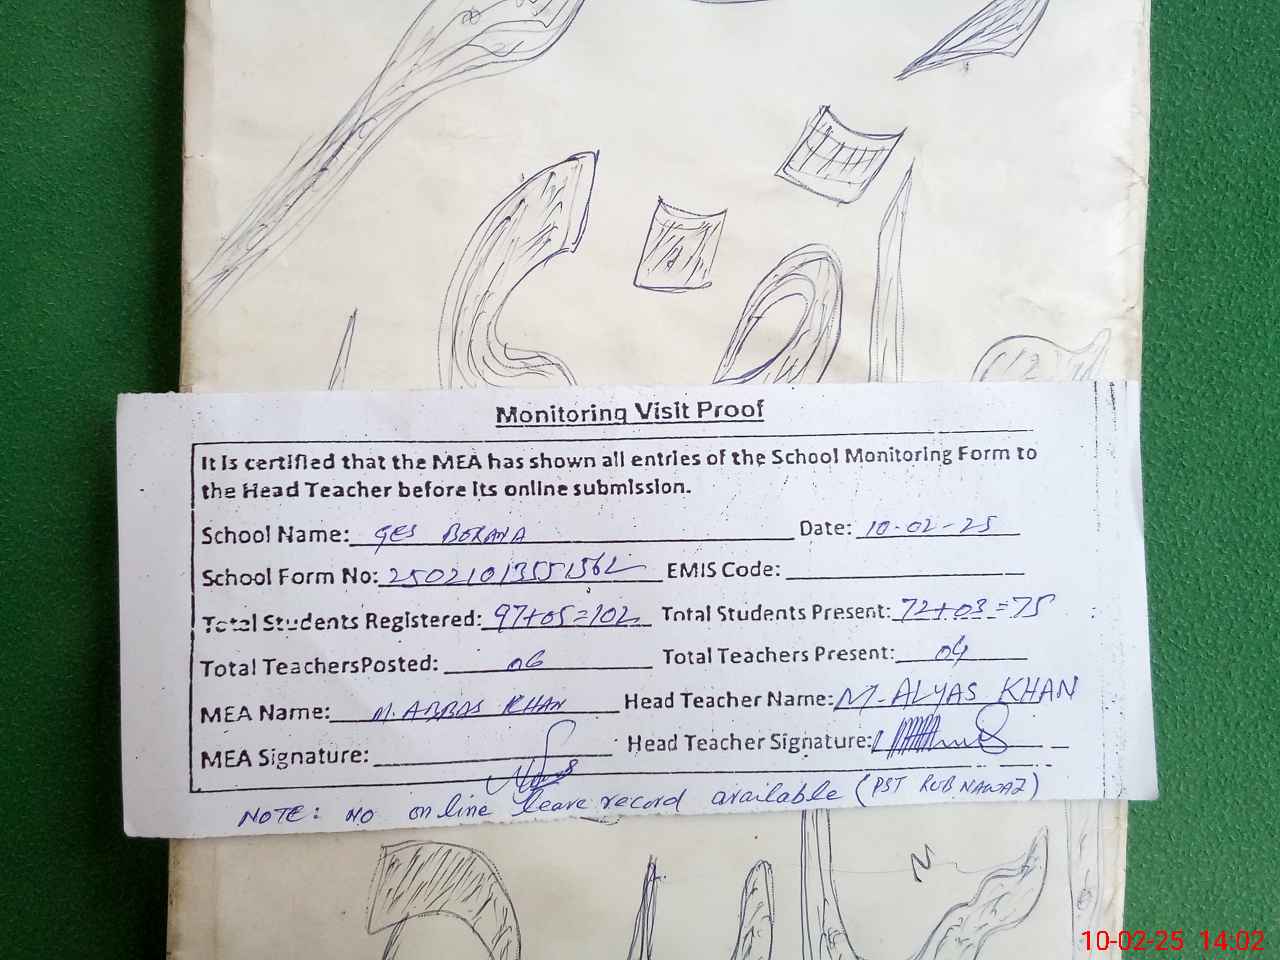 Monitoring Visit Proof
It is certified that the MEA has shown all entries of the School Monitoring Form to
the Head Teacher before its online submission.
School Name: GES BORANA Date: 10-02-25
School Form No: 25021013551562 EMIS Code:
Total Students Registered: 97+05=102 Total Students Present: 72+03=75
Total TeachersPosted: 06 Total Teachers Present: 04
MEA Name: M. ABBAS KHAN Head Teacher Name: M. ALYAS KHAN
MEA Signature: Head Teacher Signature:
NOTE: NO online leave record available (PST RUB NAWAZ)
N
10-02-25 14:02